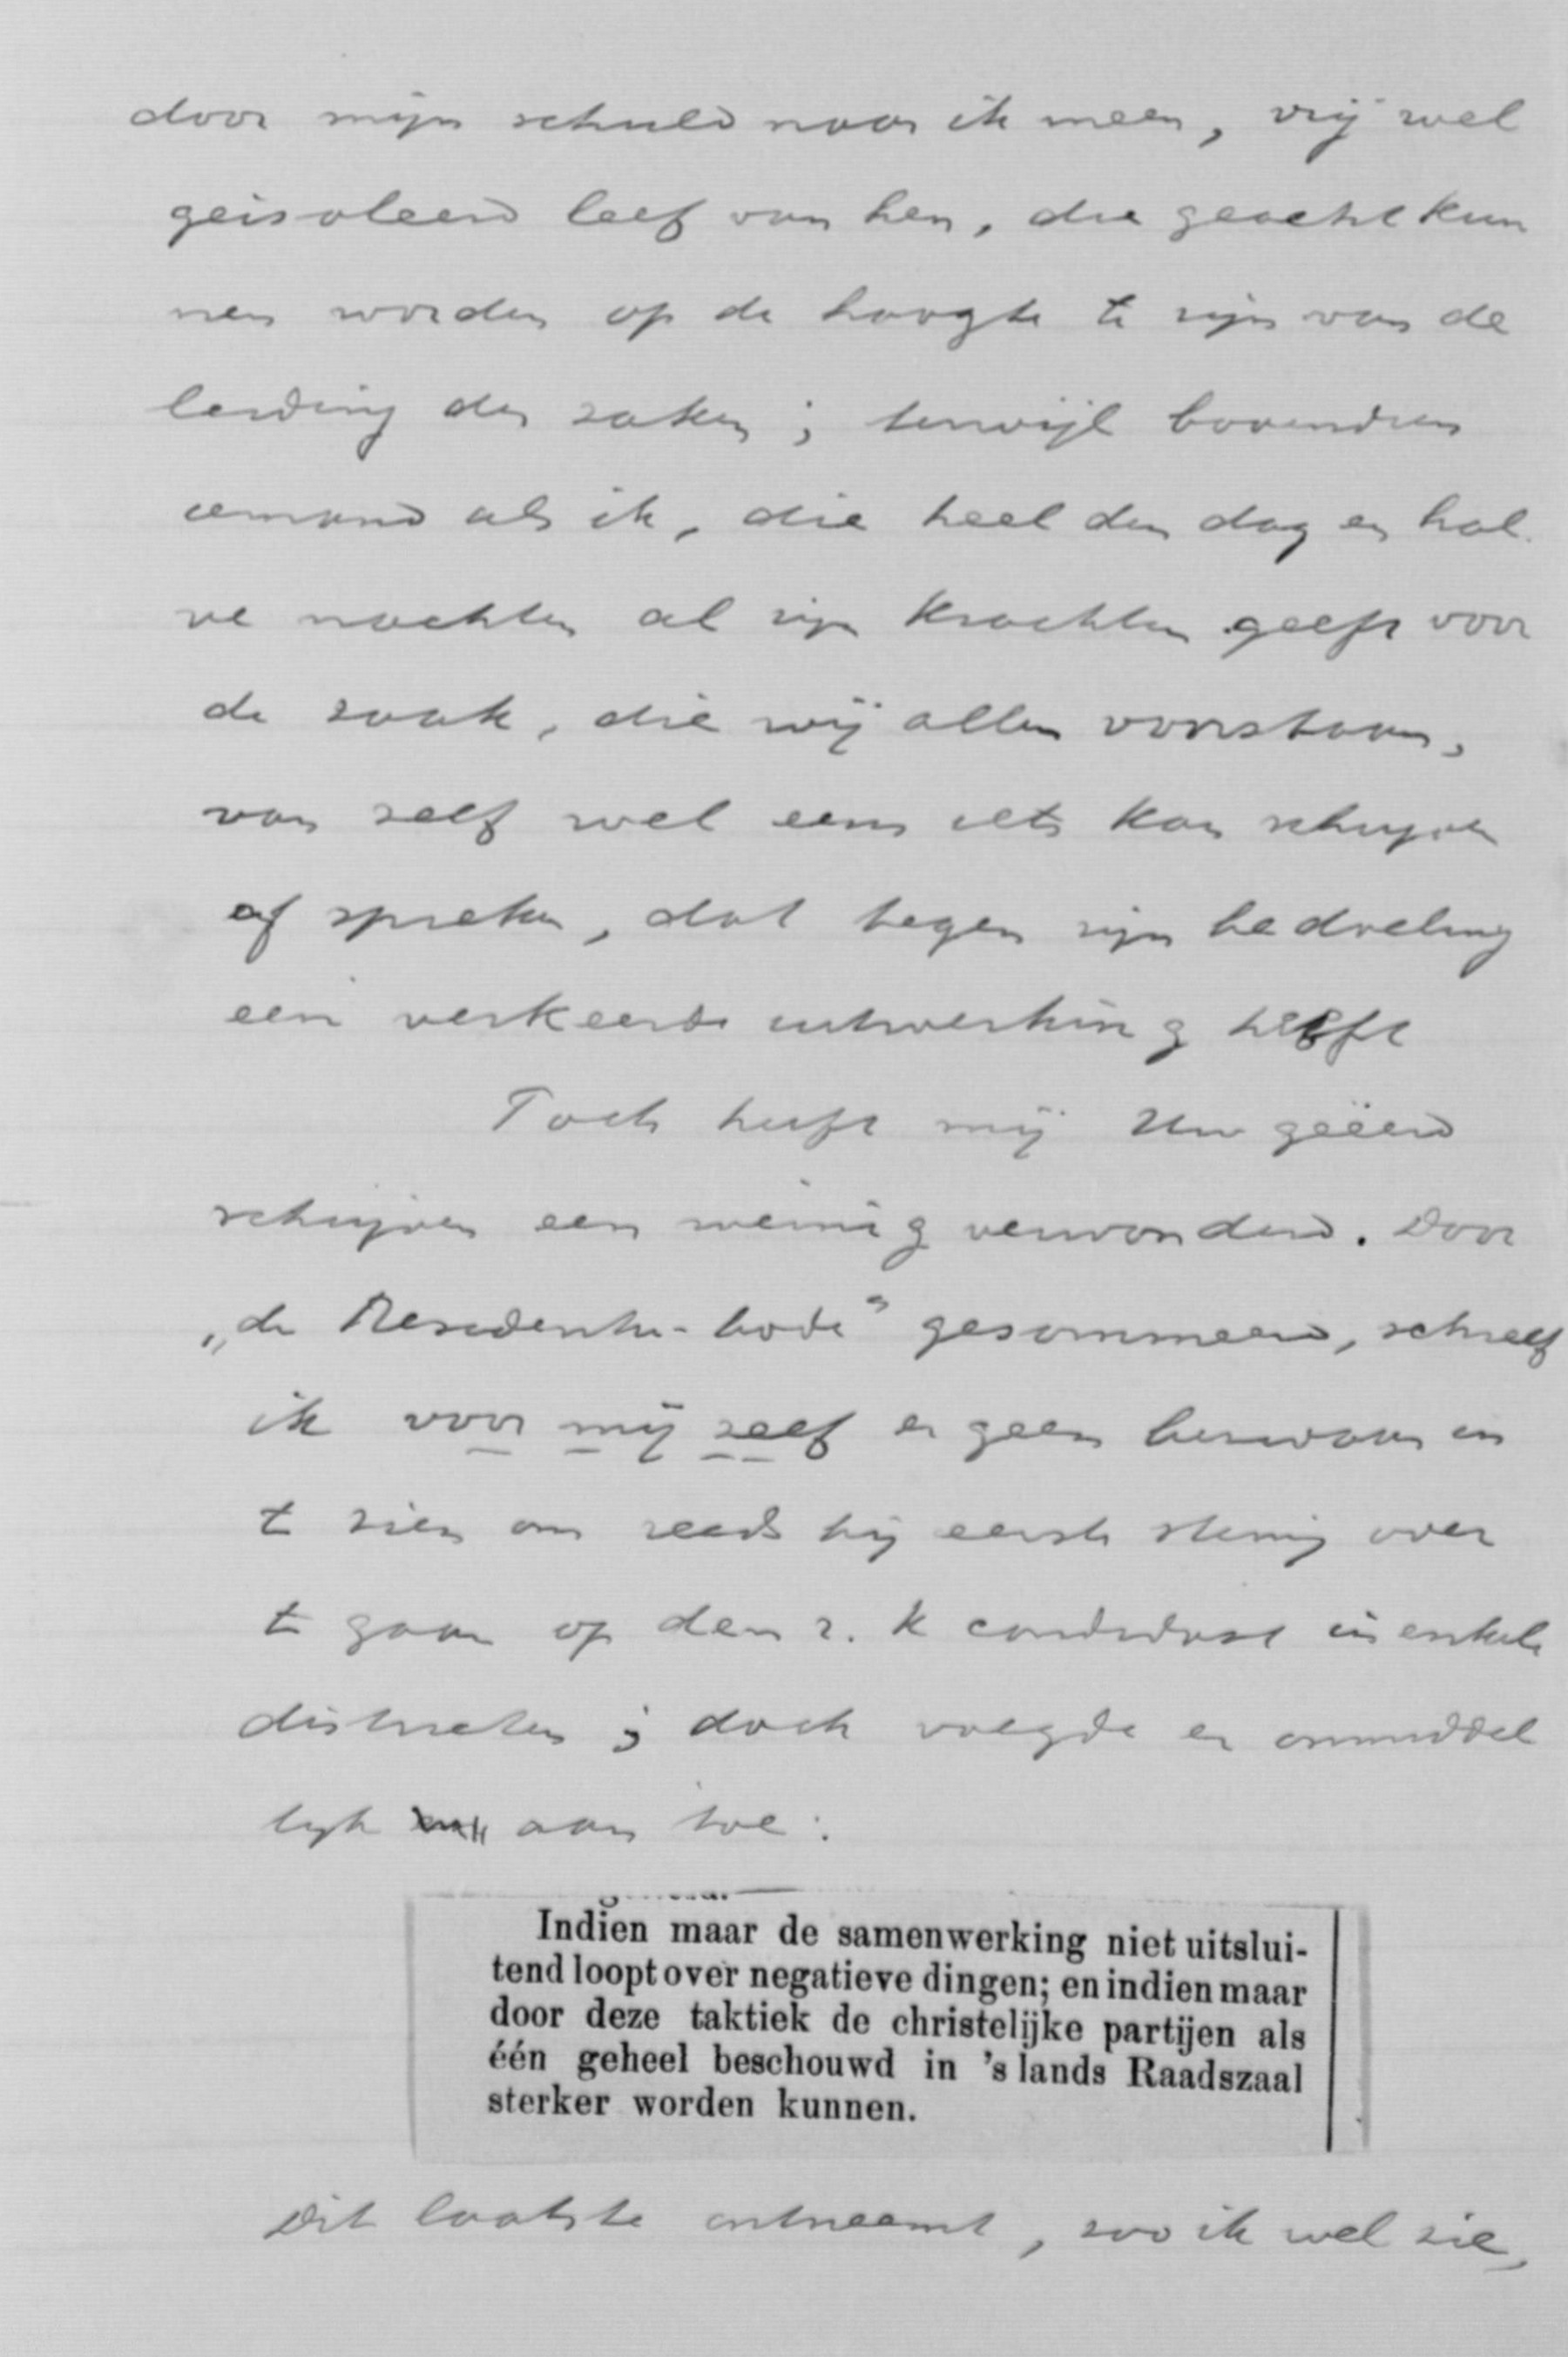 door mijn schuld naar ik meen, vrij wel
geisoleerd leef van hen, die geacht kun
nen worden op de hoogte te zijn van de
leiding der zaken; terwijl bovendien
iemand als ik, die heel den dag en hal-
ve nachten al zijn krachten geeft voor
de zaak, die wij allen voorstaan,
van zelf wel eens iets kan schrijven
of spreken, dat tegen zijn bedoeling
een verkeerde uitwerking heeft
Toch heeft mij Uw geëerd
schrijven een weinig verwonderd. Door
„de Residentie-bode" gesommeerd, schreef
ik voor mij zelf er geen bezwaar in
te zien om reeds bij eerste stemming over
te gaan op den r. k candidaat in enkele
districten; doch voegde er onmiddel
lijk aan toe:
Indien maar de samenwerking niet uitslui-
tend loopt over negatieve dingen; en indien maar
door deze taktiek de christelijke partijen als
één geheel beschouwd in 's lands Raadszaal
sterker worden kunnen.
Dit laatste ontneemt, zoo ik wel zie,